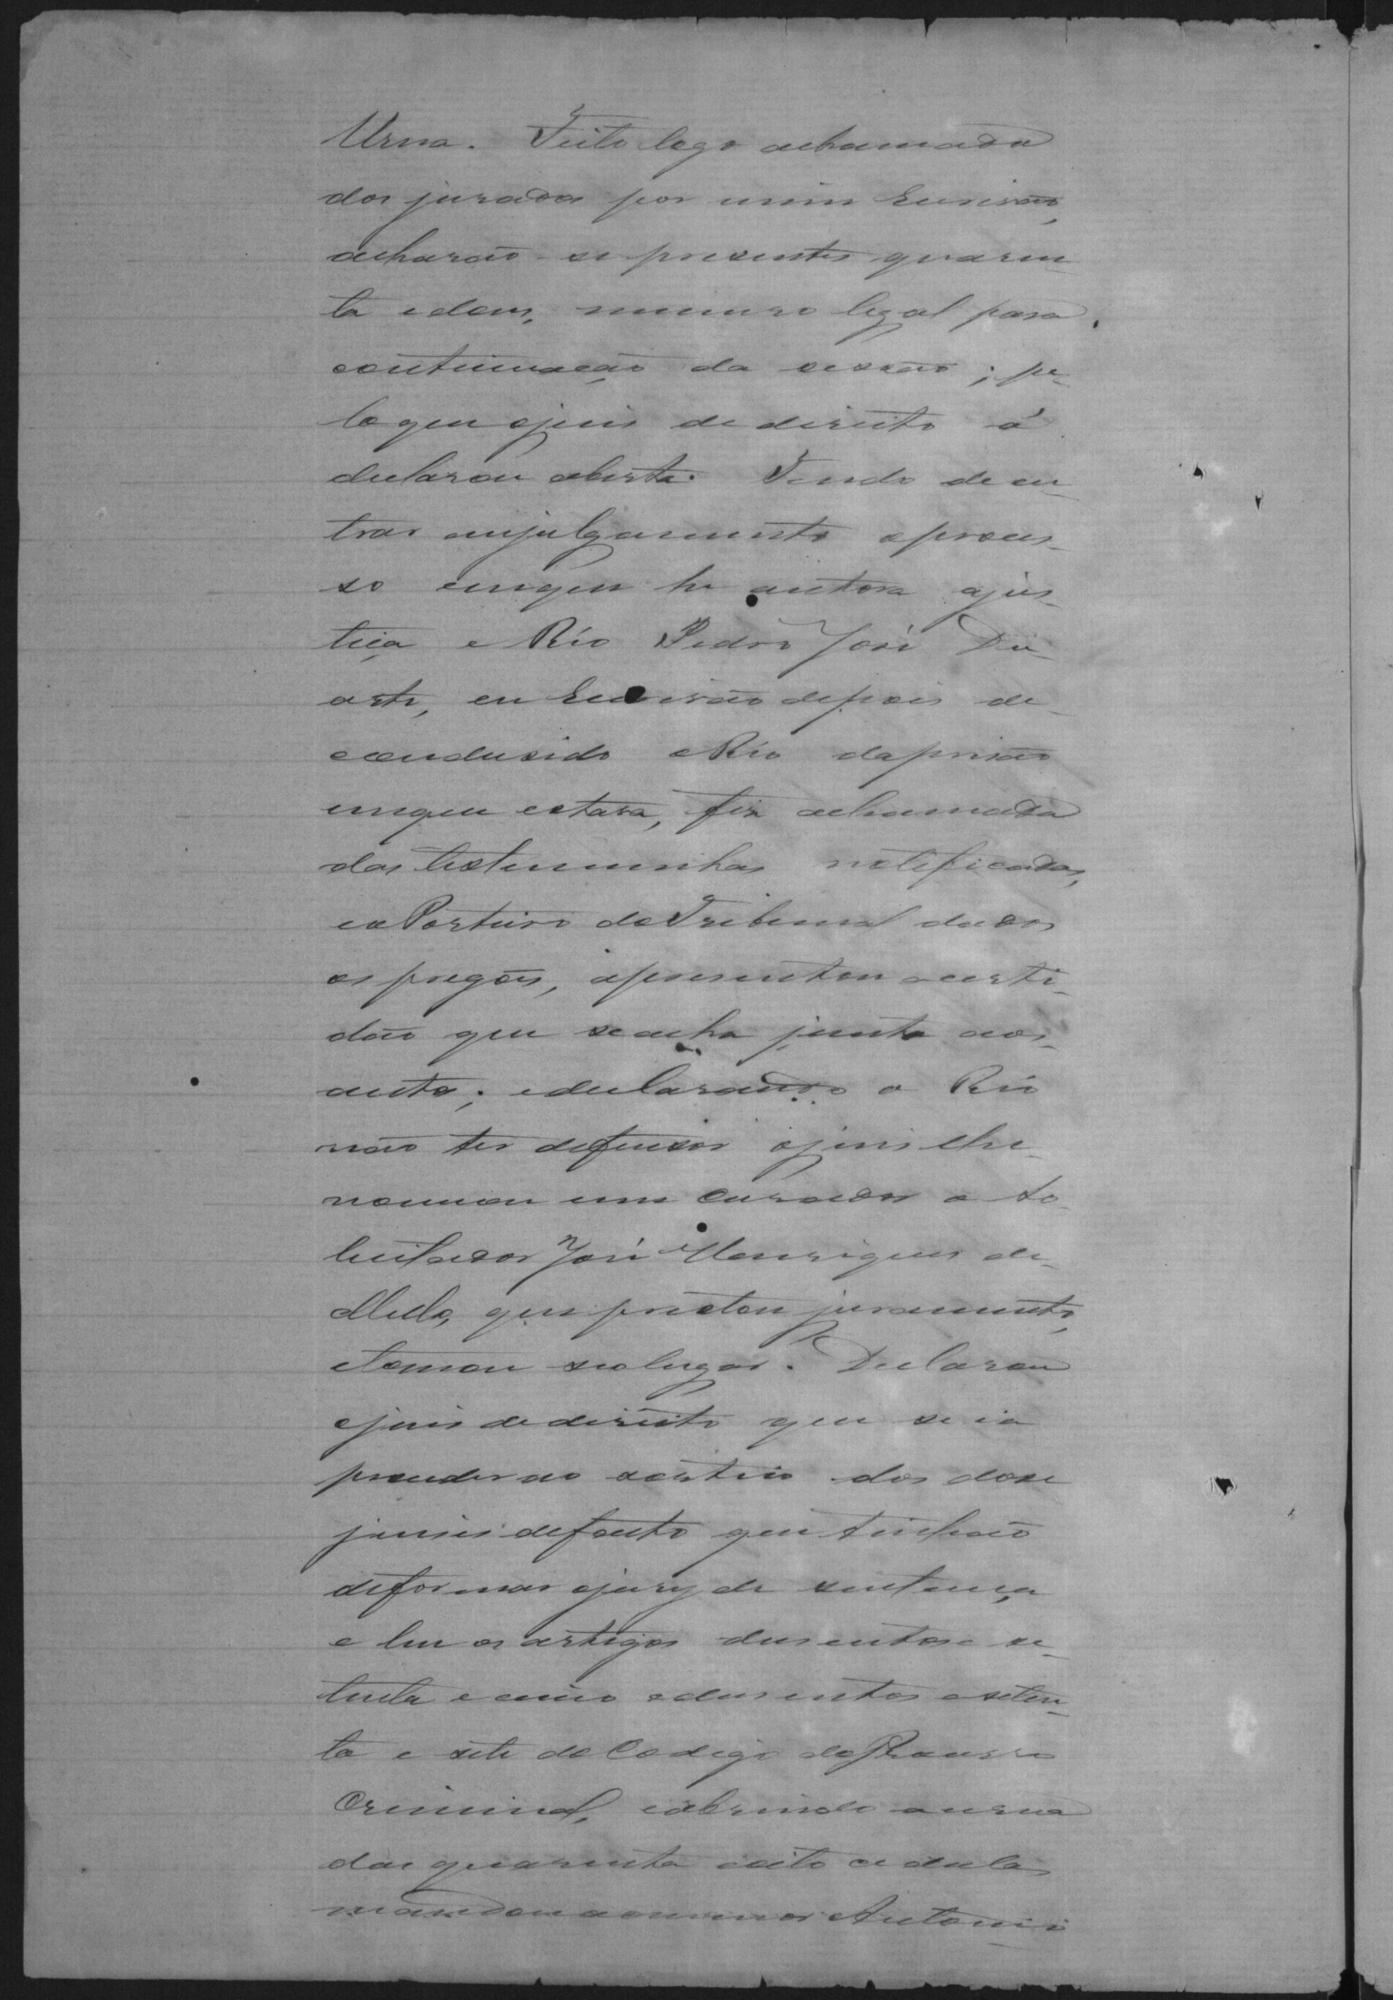 Urna. Feito logo achamada
dos jurados por mim Escrivão,
acharão-se presentes quaren-
ta edous, numero legal para
continuação da sessão; pe-
loque ojuis dedireito á
declarou aberta. Tendo de en-
trar emjulgamento oproces-
so emque he autora ajus-
tiça e Réo Pedro José Du-
arte, eu Escrivão depois de
condusido oRéo daprisão
emque estava, fiz achamada
das testemunhas notificadas,
eoPorteiro doTribunal dados
os pregões, apresentou acerti-
dão que seacha junta aos
autos; edeclarando o Réo
não ter defensor ojuis lhe
nomeou um curador o so-
licitador José Henriques de
Mello, que prestou juramento,
etomou seolugar. Declarou
ojuis dedireito que se ia
proceder ao sorteio dos dose
juises defacto que tinhão
deformar ojury de sentença
e leu os artigos dusentos e se-
tenta e cinco edusentos eseten-
ta e sete do Codigo doProcesso
Criminal, eabrindo aurna
das quarenta eoito cedulas
mandou aomenor Antonio